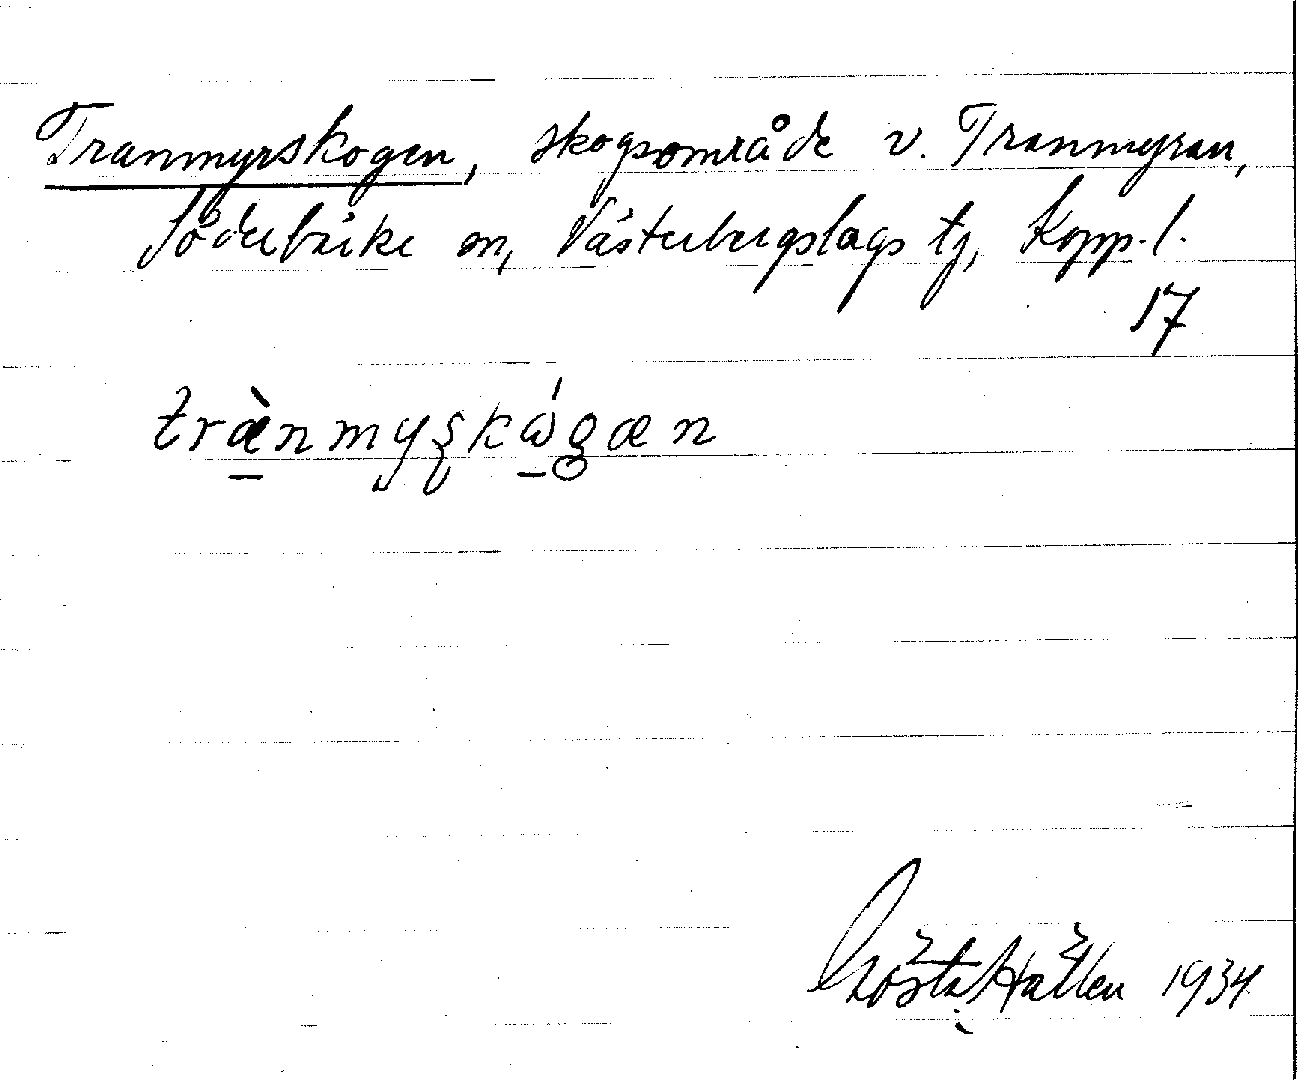 Tranmyrskogen, skogsområde v. Tranmyran,
Söderbärke sn, Västerbergslags tg, Kopp. l.
17
træ̀nmyʂkɷ́gæn
Gösta Hallén 1934